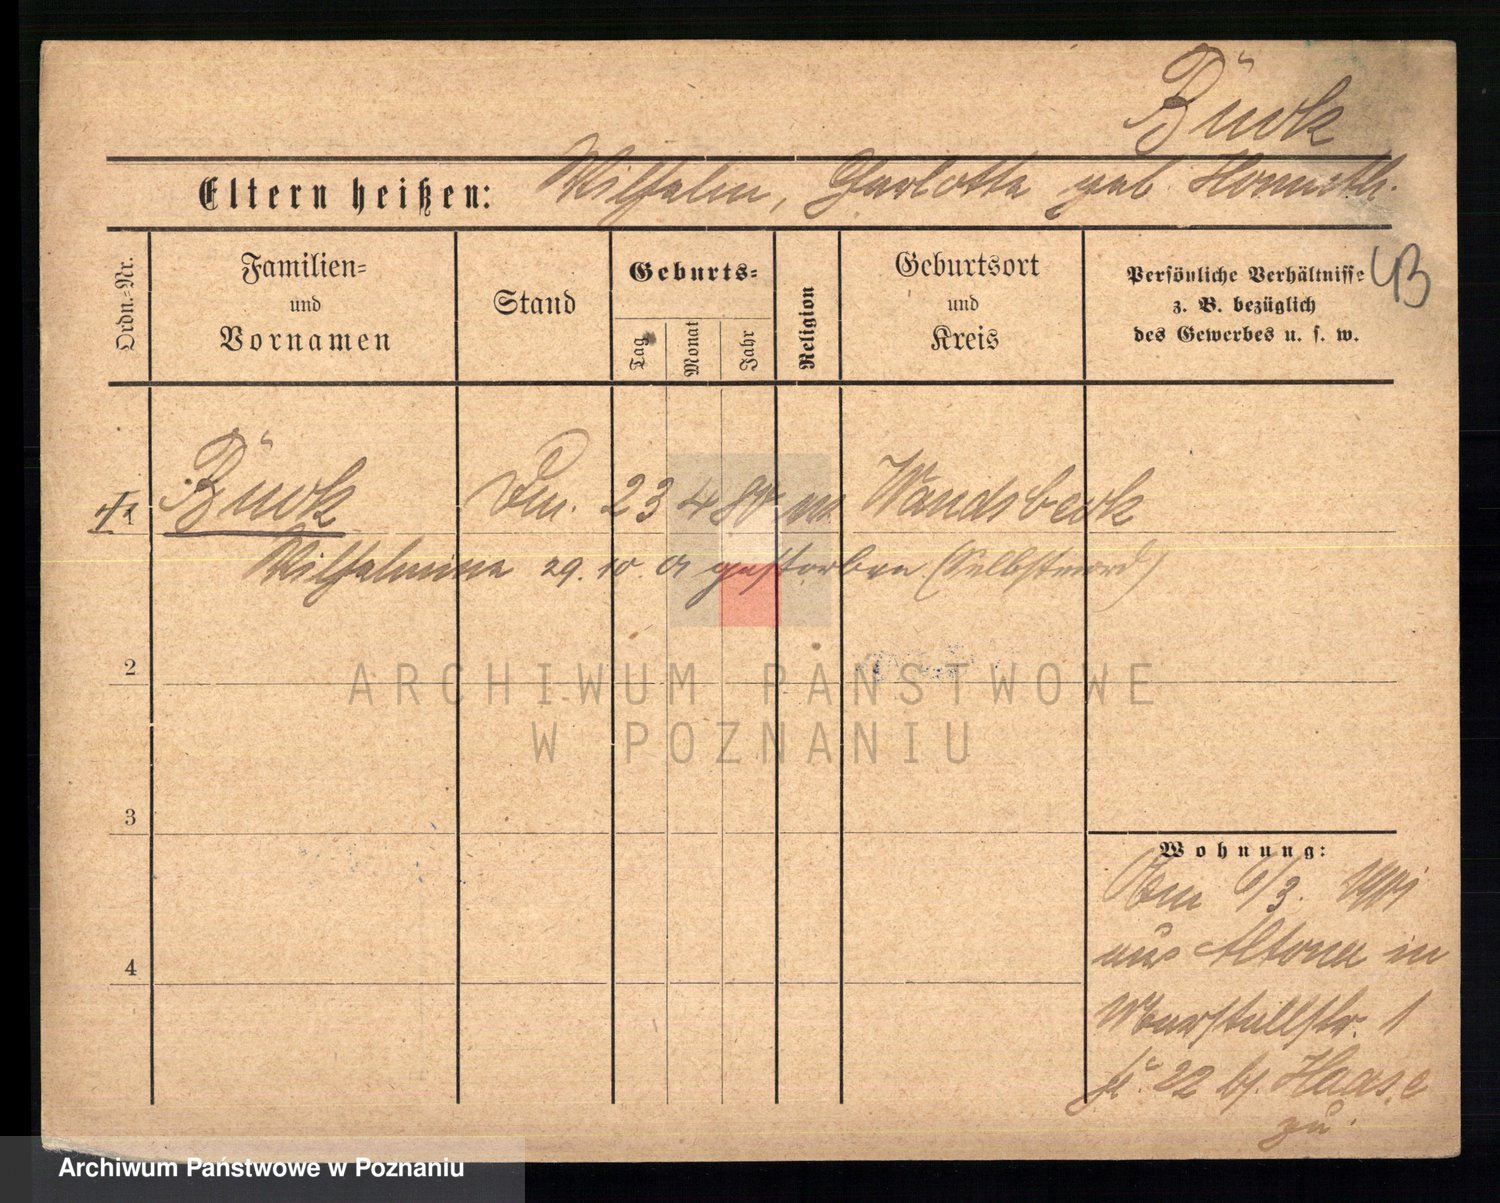 Bünk
Eltern heißen: Wilhelm, Charlotte geb.
43
Ordn.-Nr.
Familien-
und
Vornamen
Stand
Geburts-
Tag
Monat
Jahr
Religion
Geburtsort
und
Kreis
Persönliche Verhältnisse
z. B. bezüglich
des Gewerbes u. s. w.
1 Bünk 23 4 80 Wandsbeck
Wilhelmine 29. 10. 01 gestorben (Selbstmord)
2
ARCHIWUM PAŃSTWOWE
W POZNANIU
3
4
Wohnung:
Am 6/3.
aus Altona in
Marstallstr. 1
22 bei Haase
zu.
Archiwum Państwowe w Poznaniu